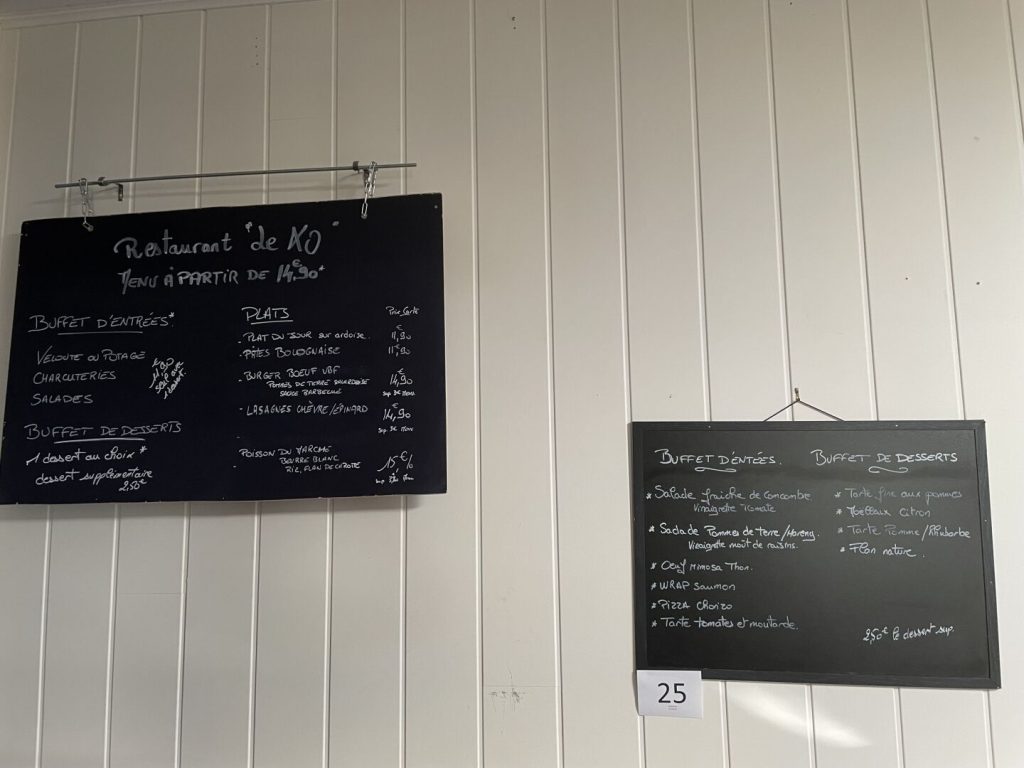 Restaurant "de XO"
MENU À PARTIR DE 14,90€*
BUFFET D'ENTRÉES*
VELOUTÉ OU POTAGE
CHARCUTERIES
SALADES
11,90
seul avec
1 dessert.
BUFFET DE DESSERTS
1 dessert au choix *
dessert supplémentaire
2,50€
PLATS
Prix Carte
- PLAT DU JOUR sur ardoise. 11,90€
- PÂTES BOLOGNAISE 11,90€
- BURGER BOEUF VBF 14,90€
POMMES DE TERRE
SAUCE BARBECUE
- LASAGNES CHÈVRE/ÉPINARD 14,90€
POISSON DU MARCHÉ 15€
BEURRE BLANC
RIZ, FLAN DE CAROTTE
BUFFET D'ENTÉES.
* Salade fraîche de concombre
Vinaigrette Tomate
* Salade Pommes de terre/Hareng.
Vinaigrette moût de raisins.
* Oeuf Mimosa Thon.
* WRAP Saumon
* PIZZA Chorizo
* Tarte tomates et moutarde.
BUFFET DE DESSERTS
* Tarte fine aux pommes
* Moelleux Citron
* Tarte Pomme/Rhubarbe
* Flan nature.
2,50€ le dessert sup.
25